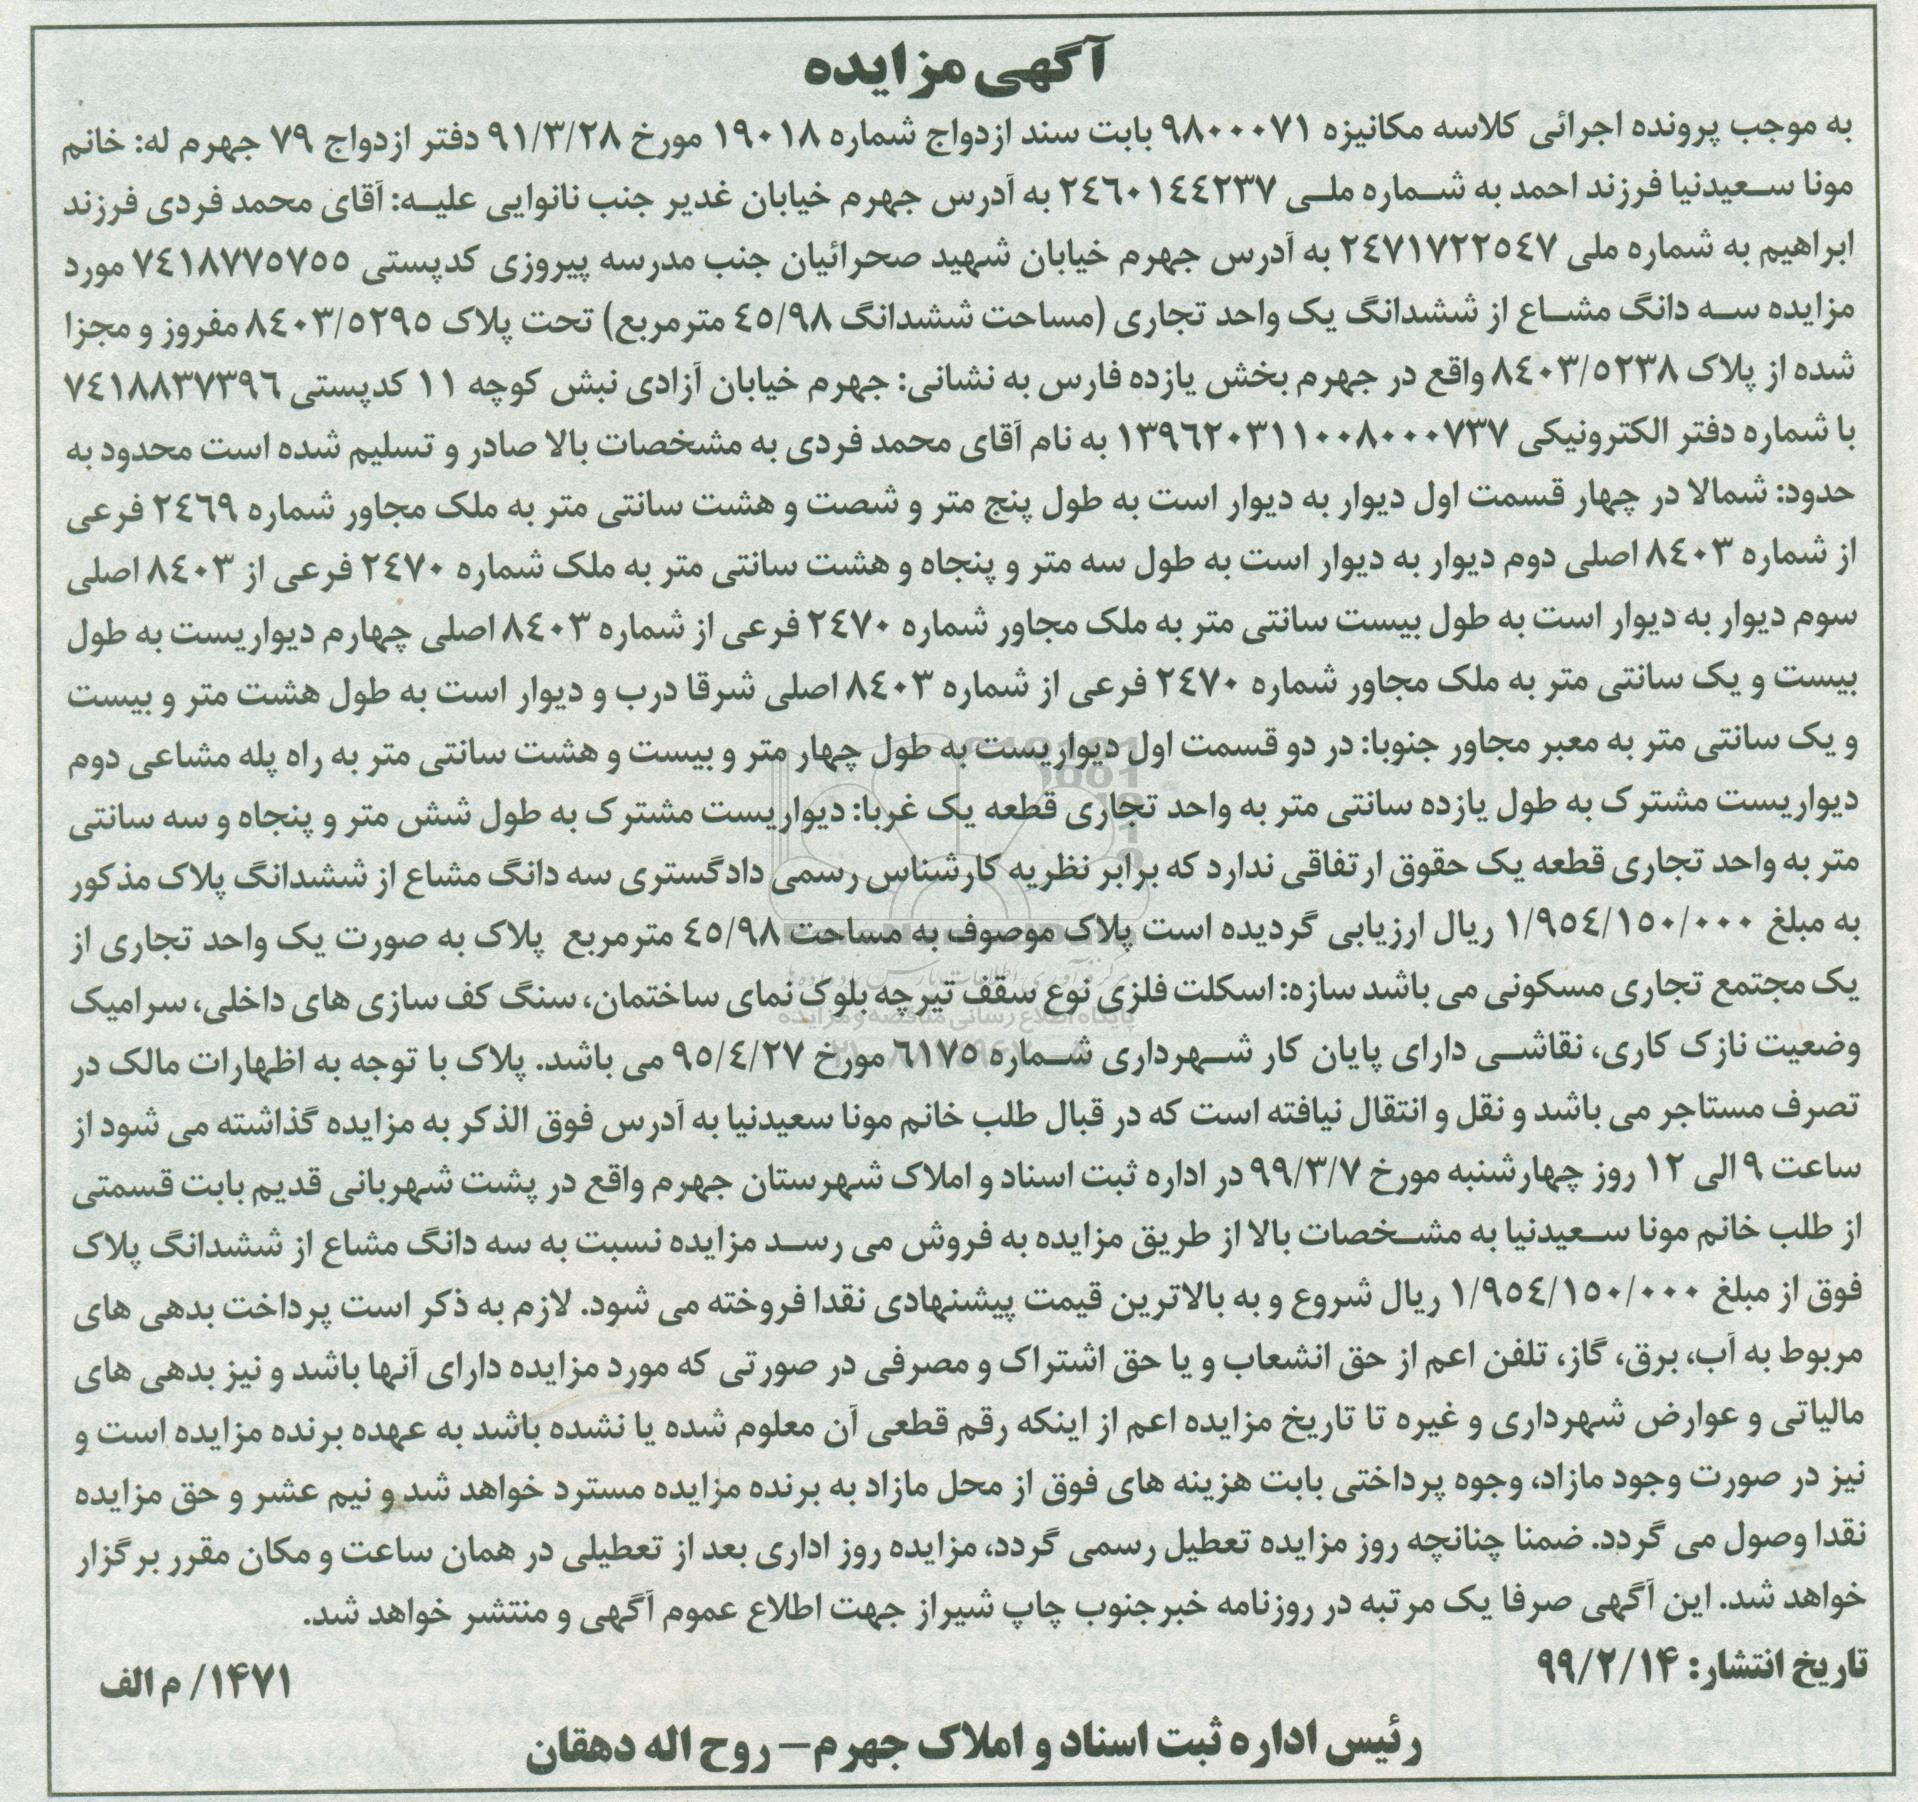 آگهی مزایده
به موجب پرونده اجرائی کلاسه مکانیزه ۹۸۰۰۰۷۱ بابت سند ازدواج شماره ۱۹۰۱۸ مورخ ۹۱/۳/۲۸ دفتر ازدواج ۷۹ جهرم له: خانم
مونا سعیدنیا فرزند احمد به شماره ملی ۲٤٦۰۱٤٤۲۳۷ به آدرس جهرم خیابان غدیر جنب نانوایی علیه: آقای محمد فردی فرزند
ابراهیم به شماره ملی ۲٤۷۱۷۲۲٥٤۷ به آدرس جهرم خیابان شهید صحرائیان جنب مدرسه پیروزی کدپستی ۷٤۱۸۷۷٥۷٥٥ مورد
مزایده سه دانگ مشاع از ششدانگ یک واحد تجاری (مساحت ششدانگ ٤٥/۹۸ مترمربع) تحت پلاک ۸٤۰۳/٥۲۹٥ مفروز و مجزا
شده از پلاک ۸٤۰۳/٥۲۳۸ واقع در جهرم بخش یازده فارس به نشانی: جهرم خیابان آزادی نبش کوچه ۱۱ کدپستی ۷٤۱۸۸۳۷۳۹٦
با شماره دفتر الکترونیکی ۱۳۹٦۲۰۳۱۱۰۰۸۰۰۰۷۳۷ به نام آقای محمد فردی به مشخصات بالا صادر و تسلیم شده است محدود به
حدود: شمالا در چهار قسمت اول دیوار به دیوار است به طول پنج متر و شصت و هشت سانتی متر به ملک مجاور شماره ۲٤٦۹ فرعی
از شماره ۸٤۰۳ اصلی دوم دیوار به دیوار است به طول سه متر و پنجاه و هشت سانتی متر به ملک شماره ۲٤۷۰ فرعی از ۸٤۰۳ اصلی
سوم دیوار به دیوار است به طول بیست سانتی متر به ملک مجاور شماره ۲٤۷۰ فرعی از شماره ۸٤۰۳ اصلی چهارم دیواریست به طول
بیست و یک سانتی متر به ملک مجاور شماره ۲٤۷۰ فرعی از شماره ۸٤۰۳ اصلی شرقا درب و دیوار است به طول هشت متر و بیست
و یک سانتی متر به معبر مجاور جنوبا: در دو قسمت اول دیواریست به طول چهار متر و بیست و هشت سانتی متر به راه پله مشاعی دوم
دیواریست مشترک به طول یازده سانتی متر به واحد تجاری قطعه یک غربا: دیواریست مشترک به طول شش متر و پنجاه و سه سانتی
متر به واحد تجاری قطعه یک حقوق ارتفاقی ندارد که برابر نظریه کارشناس رسمی دادگستری سه دانگ مشاع از ششدانگ پلاک مذکور
به مبلغ ۱/۹٥٤/۱٥۰/۰۰۰ ریال ارزیابی گردیده است پلاک موصوف به مساحت ٤٥/۹۸ مترمربع پلاک به صورت یک واحد تجاری از
یک مجتمع تجاری مسکونی می باشد سازه: اسکلت فلزی نوع سقف تیرچه بلوک نمای ساختمان، سنگ کف سازی های داخلی، سرامیک
وضعیت نازک کاری، نقاشی دارای پایان کار شهرداری شماره ٦۱۷٥ مورخ ۹٥/٤/۲۷ می باشد. پلاک با توجه به اظهارات مالک در
تصرف مستاجر می باشد و نقل و انتقال نیافته است که در قبال طلب خانم مونا سعیدنیا به آدرس فوق الذکر به مزایده گذاشته می شود از
ساعت ۹ الی ۱۲ روز چهارشنبه مورخ ۹۹/۳/۷ در اداره ثبت اسناد و املاک شهرستان جهرم واقع در پشت شهربانی قدیم بابت قسمتی
از طلب خانم مونا سعیدنیا به مشخصات بالا از طریق مزایده به فروش می رسد مزایده نسبت به سه دانگ مشاع از ششدانگ پلاک
فوق از مبلغ ۱/۹٥٤/۱٥۰/۰۰۰ ریال شروع و به بالاترین قیمت پیشنهادی نقدا فروخته می شود. لازم به ذکر است پرداخت بدهی های
مربوط به آب، برق، گاز، تلفن اعم از حق انشعاب و یا حق اشتراک و مصرفی در صورتی که مورد مزایده دارای آنها باشد و نیز بدهی های
مالیاتی و عوارض شهرداری و غیره تا تاریخ مزایده اعم از اینکه رقم قطعی آن معلوم شده یا نشده باشد به عهده برنده مزایده است و
نیز در صورت وجود مازاد، وجوه پرداختی بابت هزینه های فوق از محل مازاد به برنده مزایده مسترد خواهد شد و نیم عشر و حق مزایده
نقدا وصول می گردد. ضمنا چنانچه روز مزایده تعطیل رسمی گردد، مزایده روز اداری بعد از تعطیلی در همان ساعت و مکان مقرر برگزار
خواهد شد. این آگهی صرفا یک مرتبه در روزنامه خبرجنوب چاپ شیراز جهت اطلاع عموم آگهی و منتشر خواهد شد.
تاریخ انتشار: ۹۹/۲/۱۴
۱۴۷۱/ م الف
رئیس اداره ثبت اسناد و املاک جهرم- روح اله دهقان
پایگاه اطلاع رسانی مناقصه و مزایده